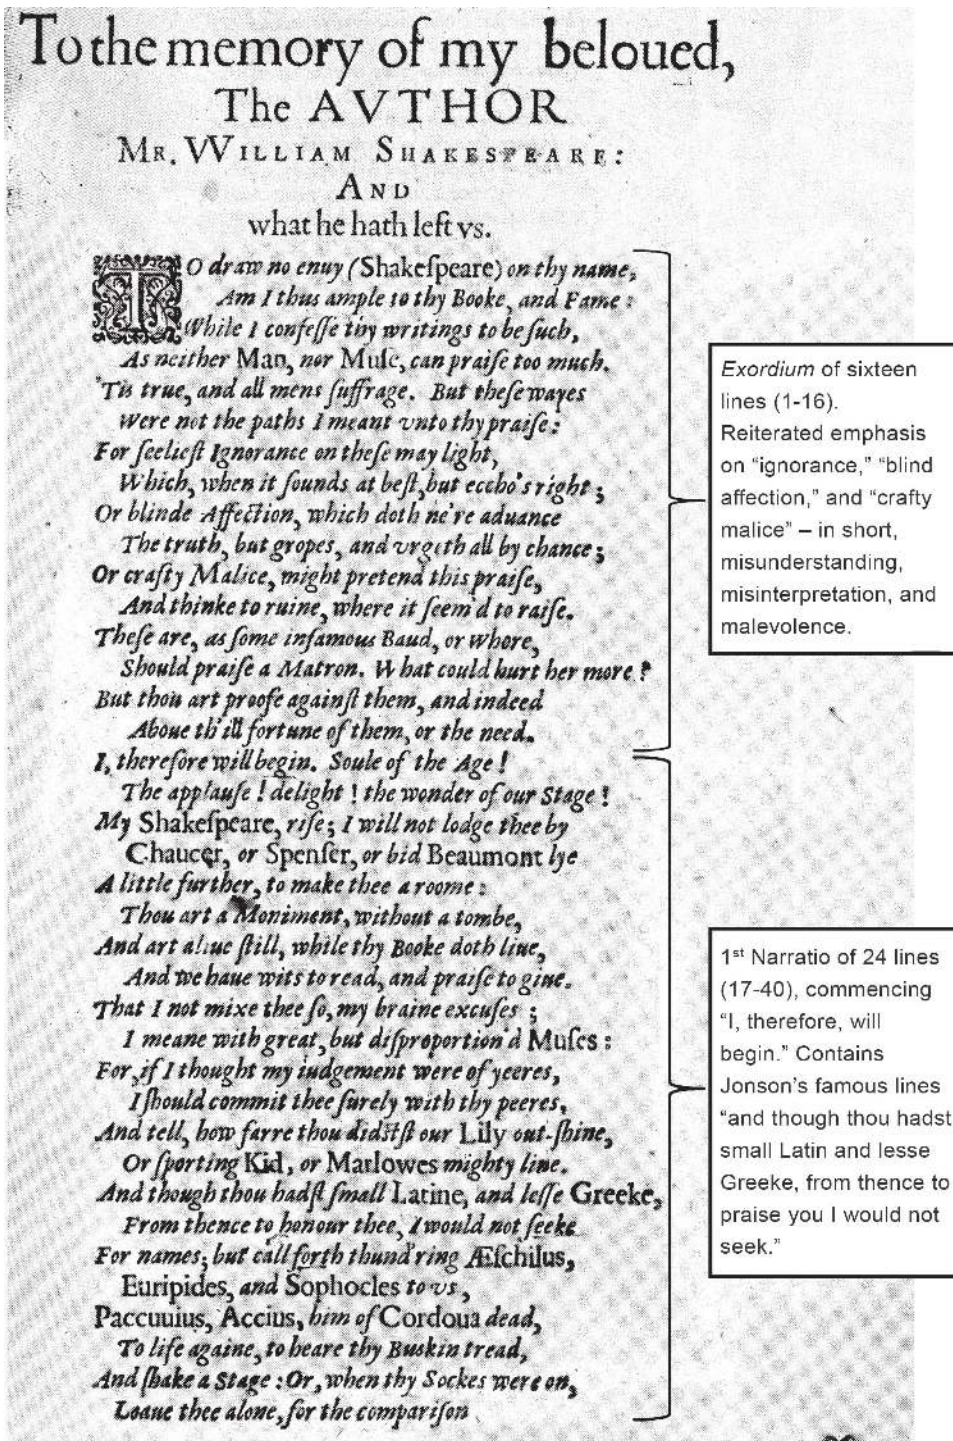 To the memory of my beloued,
The AVTHOR
MR. VVILLIAM SHAKESPEARE:
AND
what he hath left vs.
TO draw no enuy (Shakeſpeare) on thy name,
Am I thus ample to thy Booke, and Fame:
While I confeſſe thy writings to be ſuch,
As neither Man, nor Muſe, can praiſe too much.
'Tis true, and all mens ſuffrage. But theſe wayes
Were not the paths I meant vnto thy praiſe:
For ſeelieſt Ignorance on theſe may light,
Which, when it ſounds at beſt, but eccho's right;
Or blinde Affection, which doth ne're aduance
The truth, but gropes, and vrgeth all by chance;
Or crafty Malice, might pretend this praiſe,
And thinke to ruine, where it ſeem'd to raiſe.
Theſe are, as ſome infamous Baud, or Whore,
Should praiſe a Matron. What could hurt her more?
But thou art proofe againſt them, and indeed
Aboue th'ill fortune of them, or the need.
I, therefore will begin. Soule of the Age!
The applauſe! delight! the wonder of our Stage!
My Shakeſpeare, riſe; I will not lodge thee by
Chaucer, or Spenſer, or bid Beaumont lye
A little further, to make thee a roome:
Thou art a Moniment, without a tombe,
And art aliue ſtill, while thy Booke doth liue,
And we haue wits to read, and praiſe to giue.
That I not mixe thee ſo, my braine excuſes;
I meane with great, but diſproportion'd Muſes:
For, if I thought my iudgement were of yeeres,
I ſhould commit thee ſurely with thy peeres,
And tell, how farre thou didſtſt our Lily out-ſhine,
Or ſporting Kid, or Marlowes mighty line.
And though thou hadſt ſmall Latine, and leſſe Greeke,
From thence to honour thee, I would not ſeeke
For names; but call forth thund'ring Æſchilus,
Euripides, and Sophocles to vs,
Paccuuius, Accius, him of Cordoua dead,
To life againe, to heare thy Buskin tread,
And ſhake a Stage: Or, when thy Sockes were on,
Leaue thee alone, for the compariſon
Exordium of sixteen
lines (1-16).
Reiterated emphasis
on “ignorance,” “blind
affection,” and “crafty
malice” – in short,
misunderstanding,
misinterpretation, and
malevolence.
1st Narratio of 24 lines
(17-40), commencing
“I, therefore, will
begin.” Contains
Jonson’s famous lines
“and though thou hadst
small Latin and lesse
Greeke, from thence to
praise you I would not
seek.”